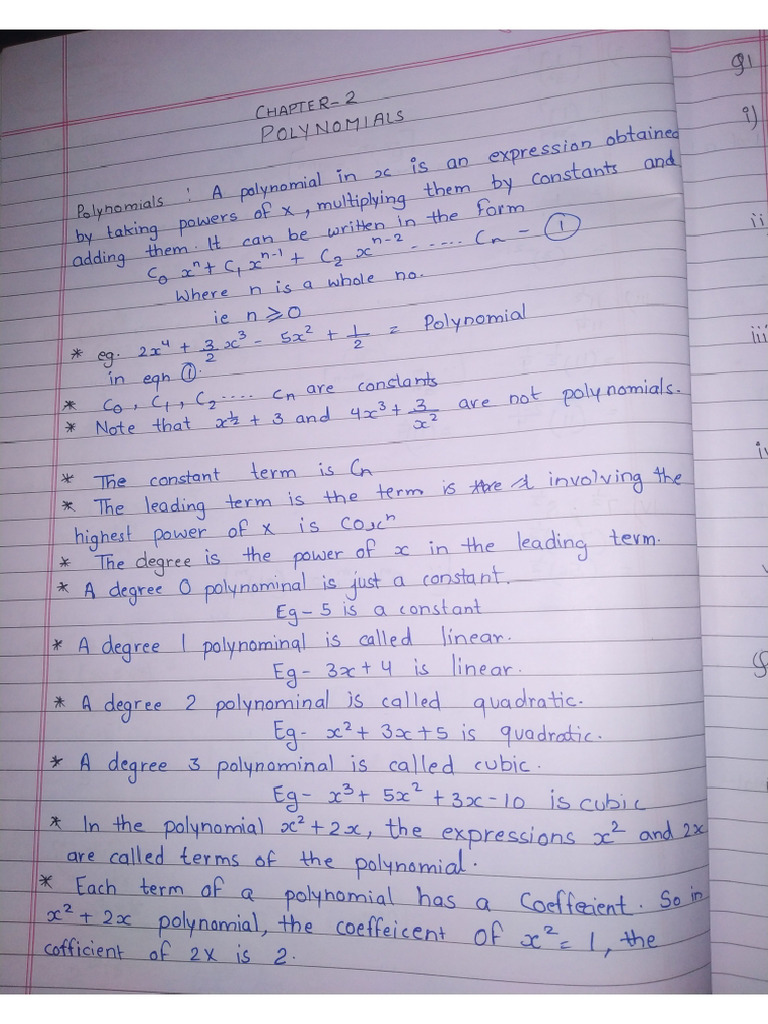 CHAPTER-2
POLYNOMIALS
Polynomials : A polynomial in x is an expression obtained
by taking powers of x, multiplying them by constants and
adding them. It can be written in the form
C₀ xⁿ + C₁ xⁿ⁻¹ + C₂ xⁿ⁻² - ..... Cₙ - ①
Where n is a whole no.
ie n ⩾ 0
* eg. 2x⁴ + 3/2 x³ - 5x² + 1/2 = Polynomial
in eqn ①.
* C₀, C₁, C₂ .... Cₙ are constants
* Note that x^½ + 3 and 4x³ + 3/x² are not polynomials.
* The constant term is Cₙ
* The leading term is the term is involving the
highest power of x is C0xⁿ
* The degree is the power of x in the leading term.
* A degree 0 polynominal is just a constant.
Eg - 5 is a constant
* A degree 1 polynominal is called linear.
Eg - 3x + 4 is linear.
* A degree 2 polynominal is called quadratic.
Eg - x² + 3x + 5 is quadratic.
* A degree 3 polynominal is called cubic.
Eg - x³ + 5x² + 3x - 10 is cubic
* In the polynomial x² + 2x, the expressions x² and 2x
are called terms of the polynomial.
* Each term of a polynomial has a Coeffecient. So in
x² + 2x polynomial, the coeffeicent of x² = 1, the
cofficient of 2x is 2.
Q1
i)
ii
iii